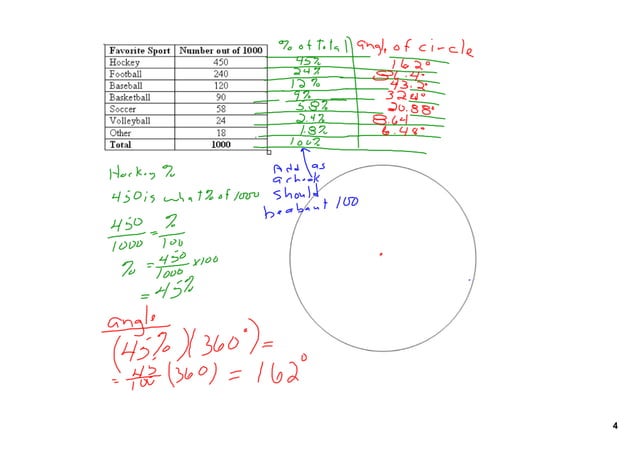 % of Total angle of circle
Favorite Sport Number out of 1000
Hockey 450 45% 162°
Football 240 24% 86.4°
Baseball 120 12% 43.2°
Basketball 90 9% 32.4°
Soccer 58 5.8% 20.88°
Volleyball 24 2.4% 8.64
Other 18 1.8% 6.48°
Total 1000 100%
Hockey %
450 is what % of 1000
450/1000 = %/100
% = 450/1000 x100
= 45%
Add as
a check
should
be about 100
angle
(45%)(360°) =
= 45/100 (360) = 162°
4